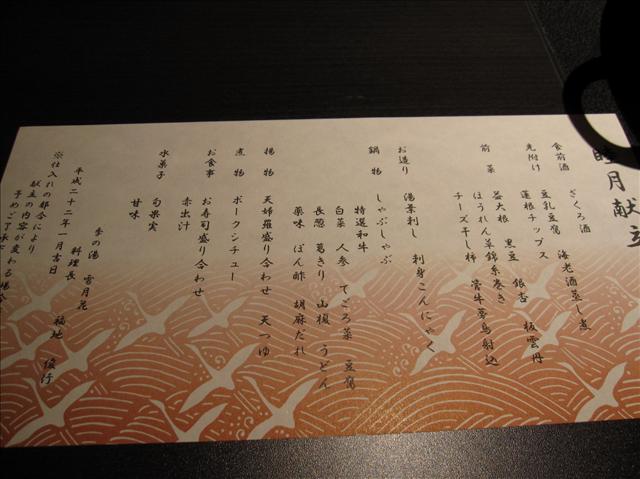 睦月献立
食前酒 ざくろ酒
先附け 豆乳豆腐 海老酒蒸し煮
蓮根チップス 銀杏 板雲丹
前菜 苺大根 黒豆
ほうれん草錦糸巻き 管牛蒡鳥射込
チーズ干し柿
お造り 湯葉刺し 刺身こんにゃく
鍋物 しゃぶしゃぶ
特選和牛
白菜 人参 てごろ菜 豆腐
長葱 葛きり 山榎 うどん
薬味 ぽん酢 胡麻だれ
揚物 天婦羅盛り合わせ 天つゆ
煮物 ポークシチュー
お食事 お寿司盛り合わせ
赤出汁
水菓子 旬果実
甘味
季の湯 雪月花
料理長 福地 俊行
平成二十二年一月吉日
※仕入れの都合により
献立の内容が変わる場合
予めご了承